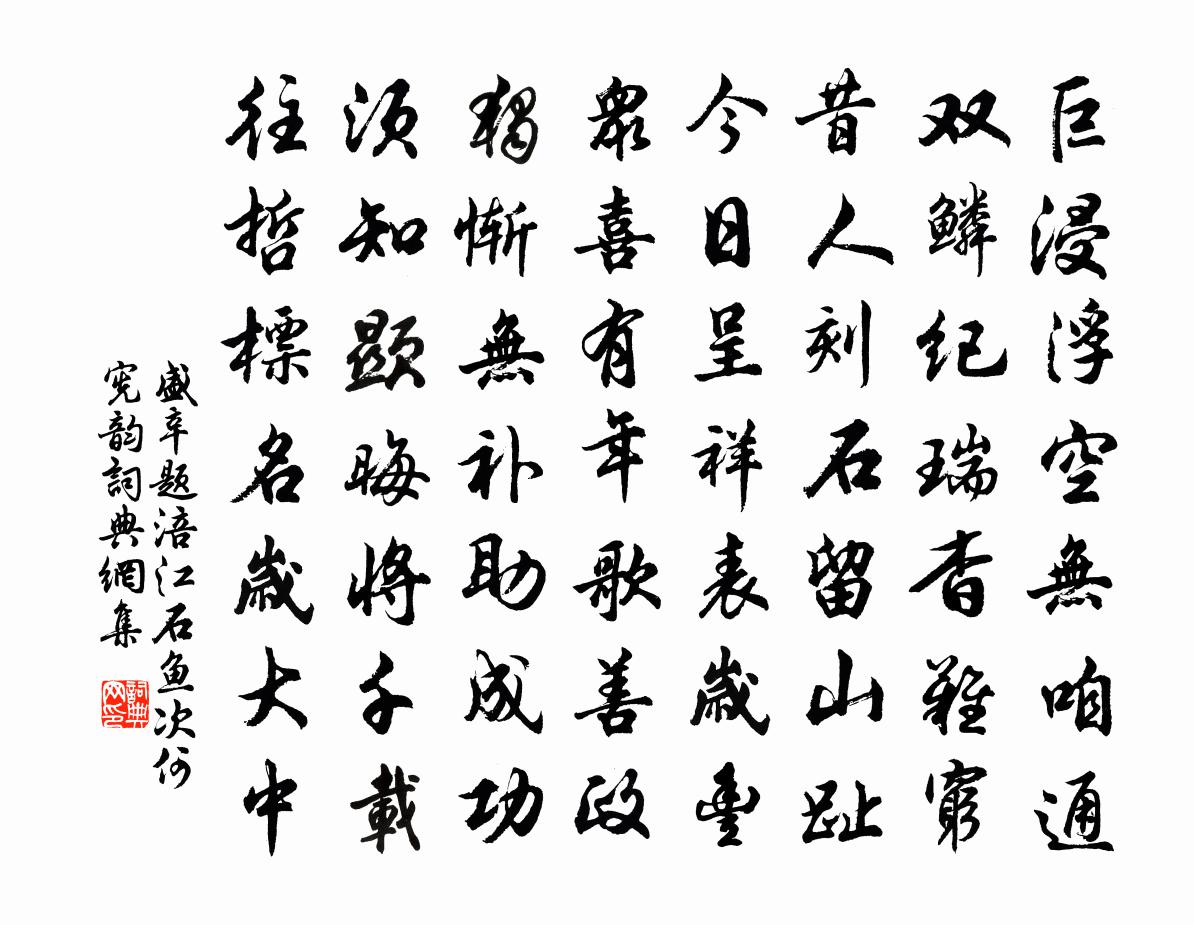 巨浸浮空無咱通
双鱗纪瑞杳難窮
昔人刻石留山趾
今日呈祥表歲豐
眾喜有年歌善政
獨慚無补助成功
須知顯晦將千載
往哲標名歲大中
盛辛题涪江石鱼次何
宪韵詞典網集
詞典